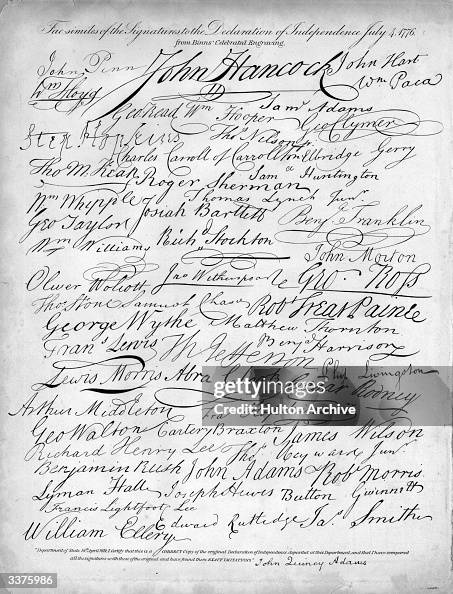 Fac similes of the Signatures to the Declaration of Independence July 4. 1776.
from Binns' Celebrated Engraving.
John Penn John Hancock John Hart
Wm Floyd Wm Paca
Geo Read Wm Hooper Saml Adams
Geo Clymer
Step. Hopkins Thos Nelson jr
Charles Carroll of Carrollton Elbridge Gerry
Tho M Kean Roger Sherman Saml Huntington
Wm Whipple Thomas Lynch Junr
Josiah Bartlett Benj. Franklin
Geo Taylor
Wm Williams Richd Stockton John Morton
Oliver Wolcott Jno Witherspoon Geo. Ross
Thos Stone Samuel Chase Robt Treat Paine
George Wythe Matthew Thornton
Frans Lewis Th Jefferson Benj Harrison
Lewis Morris Abra Phil. Livingston
Rodney
Arthur Middleton Fra
Geo Walton Carter Braxton James Wilson
Richard Henry Lee Thos Heyward Junr.
Benjamin Rush John Adams Robt Morris
Lyman Hall Joseph Hewes Button Gwinnett
Francis Lightfoot Lee
William Ellery Edward Rutledge Jas Smith
"Department of State 19th April 1819, I certify that this is a CORRECT Copy of the original Declaration of Independence deposited at this Department, and that I have compared
all the signatures with those of the original, and have found them EXACT IMITATIONS." John Quincy Adams
gettyimages
Credit: Hulton Archive
3375986